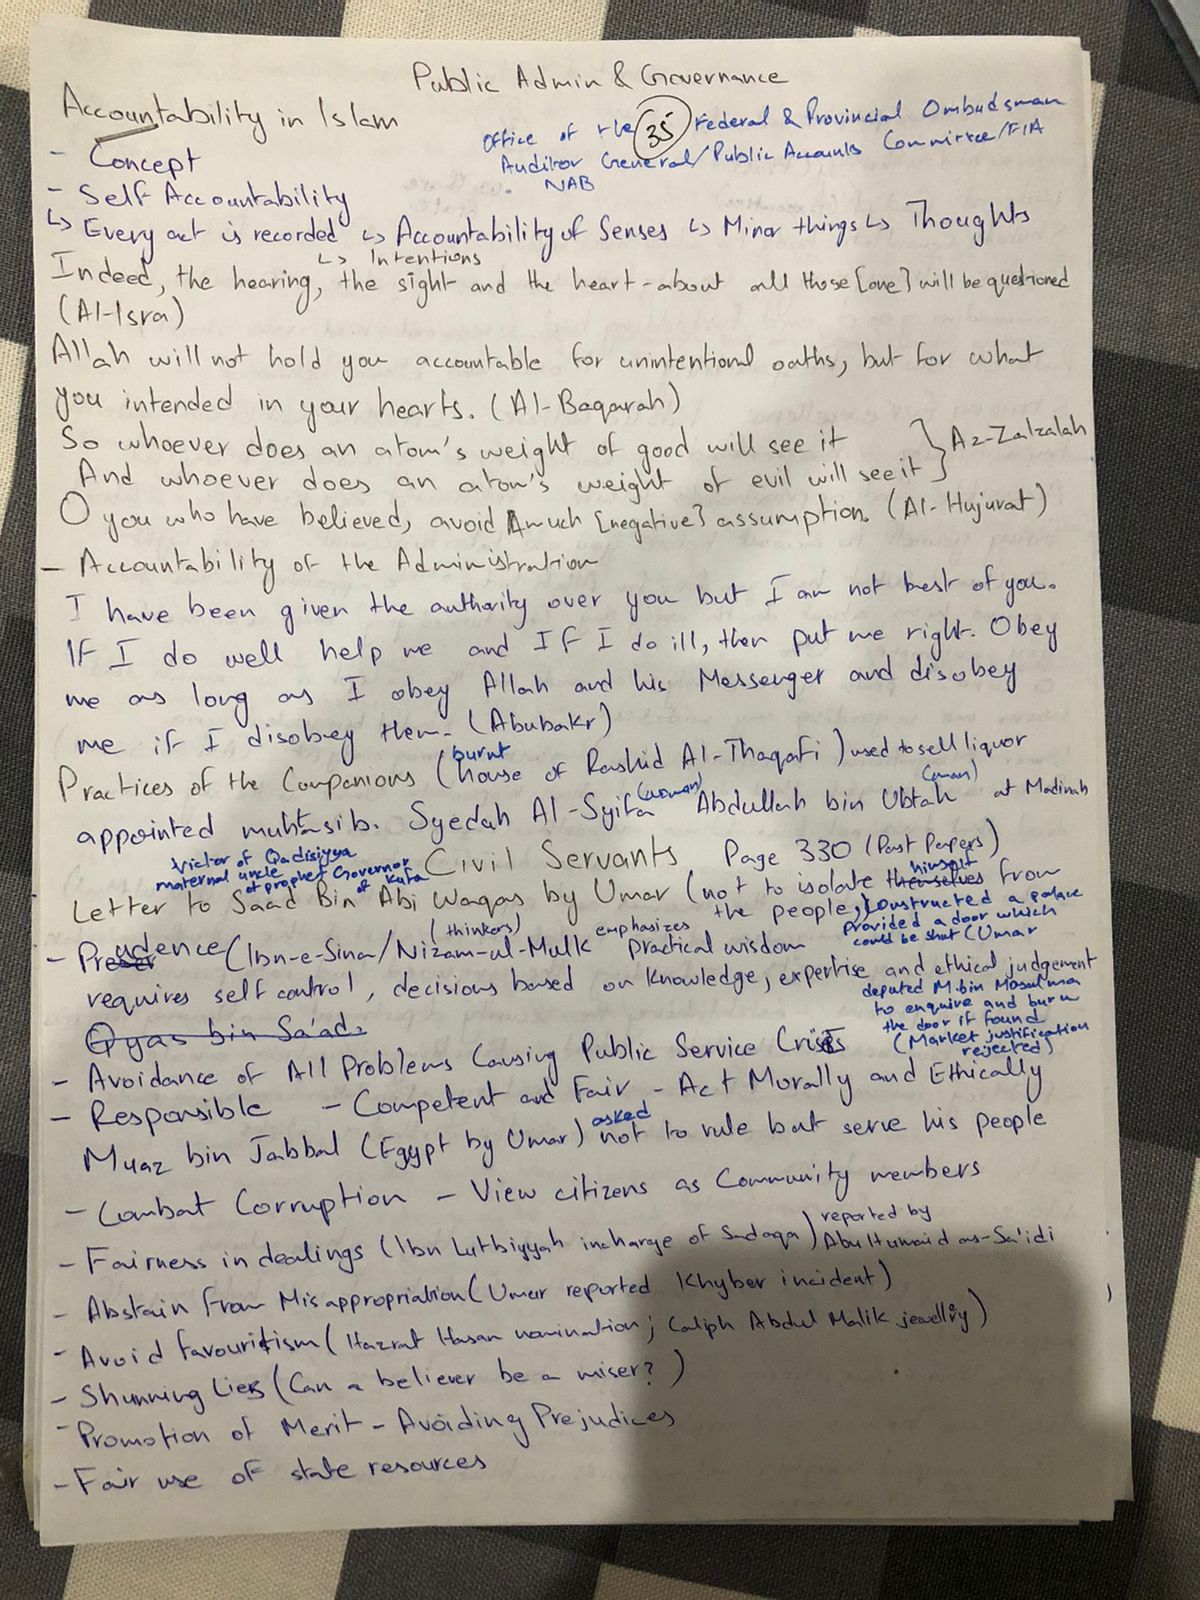 Public Admin & Governance
Accountability in Islam
Office of the Federal & Provincial Ombudsman
35
Auditor General/Public Accounts Committee/FIA
NAB
- Concept
- Self Accountability
↳ Every act is recorded ↳ Accountability of Senses ↳ Minor things ↳ Thoughts
↳ Intentions
Indeed, the hearing, the sight and the heart - about all those [one] will be questioned
(Al-Isra)
Allah will not hold you accountable for unintentional oaths, but for what
you intended in your hearts. (Al-Baqarah)
So whoever does an atom's weight of good will see it
And whoever does an atom's weight of evil will see it } Az-Zalzalah
O you who have believed, avoid much [negative] assumption. (Al-Hujurat)
- Accountability of the Administration
I have been given the authority over you but I am not best of you.
If I do well help me and If I do ill, then put me right. Obey
me as long as I obey Allah and his Messenger and disobey
me if I disobey them. (Abubakr)
burnt
Practices of the Companions (house of Rashid Al-Thaqafi) used to sell liquor
appointed muhtasib. Syedah Al-Syifa (woman) Abdullah bin Ubtah (man) at Madinah
Civil Servants Page 330 (Past Papers)
Victor of Qadisiyya
maternal uncle of prophet Governor of Kufa
Letter to Saad Bin Abi Waqas by Umar (not to isolate themselves himself from
the people, Constructed a palace
provided a door which
could be shut (Umar
deputed M. bin Maslma
to enquire and burn
the door if found
(Market justification
rejected)
- Prudence (Ibn-e-Sina/Nizam-ul-Mulk (thinkers) emphasizes practical wisdom
requires self control, decisions based on knowledge, expertise and ethical judgement
Qyas bin Sa'ad
- Avoidance of All Problems Causing Public Service Crisis
- Responsible - Competent and Fair - Act Morally and Ethically
Muaz bin Jabbal (Egypt by Umar) asked not to rule but serve his people
- Combat Corruption - View citizens as Community members
- Fairness in dealings (Ibn Lutbiyyah incharge of Sadaqa) reported by Abu Humaid as-Sa'idi
- Abstain from Misappropriation (Umar reported Khyber incident)
- Avoid favouritism (Hazrat Hasan nomination; Caliph Abdul Malik jewellry)
- Shunning Lies (Can a believer be a miser?)
- Promotion of Merit - Avoiding Prejudices
- Fair use of state resources